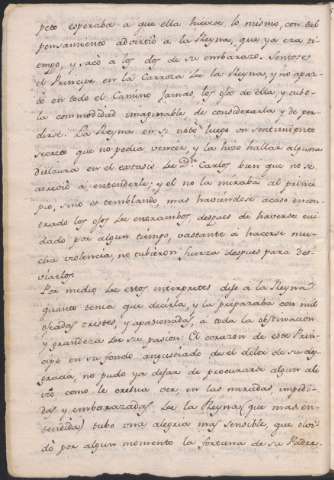 peto esperaba a que ella hiciese lo mismo, con tal
pensamiento advirtió a la Reyna, que ya era ti-
empo, y sacó a los dos de su embarazo. Sentose
el Principe en la Carroza de la Reyna, y no apar-
tó en todo el Camino Jamas, los ojos de ella, y tubo
la commodidad imaginable de considerarla y de per-
derse. La Reyna en si notó luego un sentimiento
secreto que no podia vencer, y la hizo hallar alguna
dulzura en el extasis de Dn. Carlos, bien que no se
atrevió a entenderle; y el no la miraba al princi-
pio, sino es temblando, mas haviendose acaso encon-
trado los ojos de entrambos, despues de haverse cui-
dado por algun tiempo, bastante a hacerse mu-
cha violencia, no tubieron fuerza despues para des-
viarlos.
Por medio de estos interpretes dijo a la Reyna
quanto tenia que decirla, y la preparaba con mil
ojeadas tristes, y apasionadas, a toda la obstinacion
y grandeza de su pasion. El corazon de este Prin-
cipe en su fondo, angustiado de el dolor de su des-
gracia, no pudo ya dejar de procurarse algun ali-
vio, como le crehia ver, en las miradas, impedi-
das, y embarazadas de la Reyna (que mas en-
tendida) tubo una alegria mas sensible, que olvi-
dó por algun momento la fortuna de su Padre.